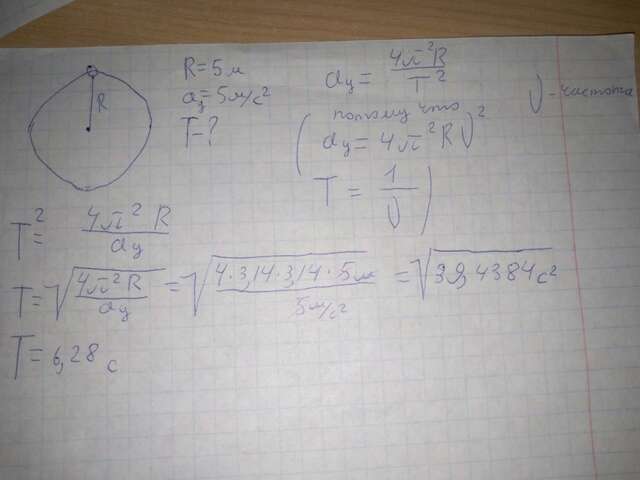 R
R = 5 м
aц = 5 м/с²
T = ?
aц = 4π²R / T²
(потому что
aц = 4π²Rν²
T = 1/ν)
ν - частота
T² = 4π²R / aц
T = √(4π²R / aц) = √(4·3,14·3,14·5м / 5м/с²) = √39,4384 с²
T = 6,28 с